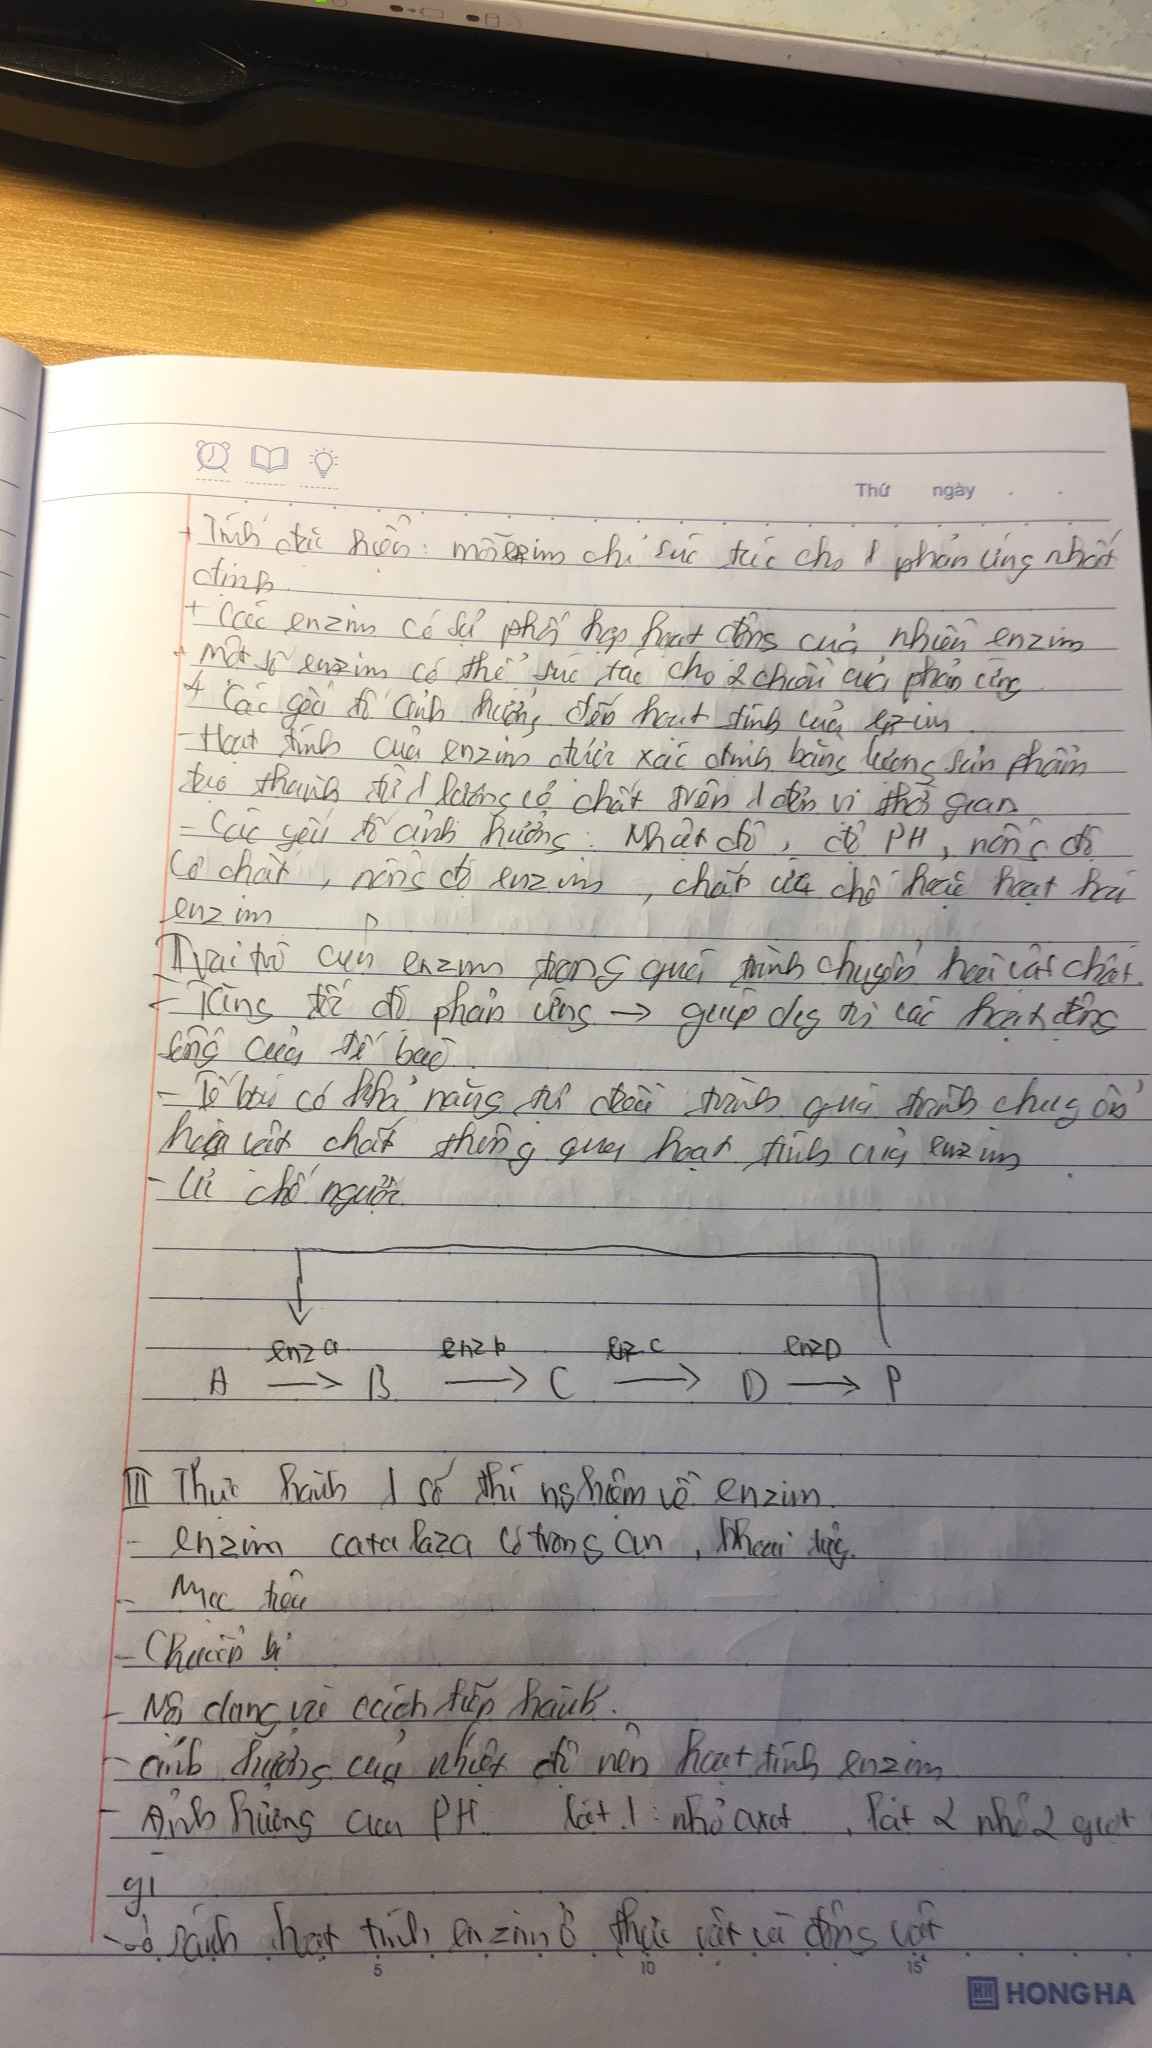 Thứ ngày . .
+ Tính đặc hiệu: mỗi enzim chỉ xúc tác cho 1 phản ứng nhất
định
+ Các enzim có sự phối hợp hoạt động của nhiều enzim
+ một số enzim có thể xúc tác cho 2 chiều của phản ứng
4 Các yếu tố ảnh hưởng đến hoạt tính của enzim
- Hoạt tính của enzim được xác định bằng lượng sản phẩm
tạo thành từ 1 lượng cơ chất trên 1 đơn vị thời gian
- Các yếu tố ảnh hưởng: Nhiệt độ, độ PH, nồng độ
Cơ chất, nồng độ enzim, chất ức chế hoặc hoạt hoá
enzim
II Vai trò của enzim trong quá trình chuyển hoá vật chất.
- Tăng tốc độ phản ứng → giúp duy trì các hoạt động
sống của tế bào
- Tế bào có khả năng tự điều quá trình chuyển
hoá vật chất thông qua hoạt tính của enzim
- ức chế ngược
enz a enz b enz c enz D
A → B → C → D → P
III Thực hành 1 số thí nghiệm về enzim
- enzim catalaza có trong gan, khoai tây.
- Mục tiêu
- Chuẩn bị
- Nội dung và cách tiến hành.
- ảnh hưởng của nhiệt độ nên hoạt tính enzim
- Ảnh hưởng của PH lát 1: nhỏ axit, lát 2 nhỏ 2 giọt
gì
- so sánh hoạt tính enzim ở thực vật và động vật
5 10 15
HONG HA